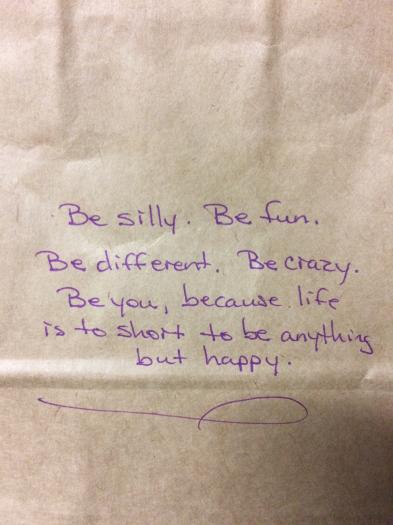 Be silly. Be fun.
Be different. Be crazy.
Be you, because life
is to short to be anything
but happy.